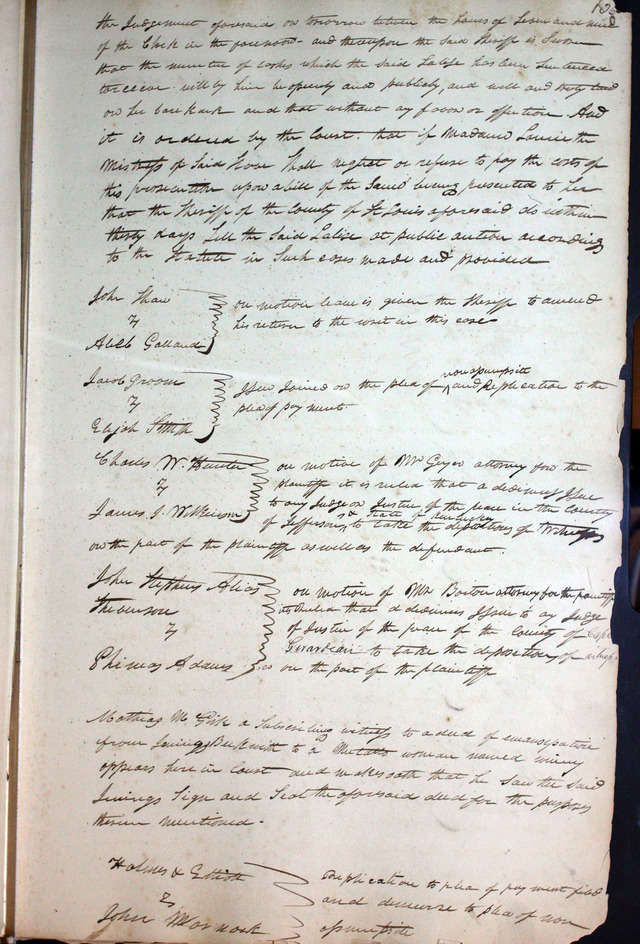 the Judgement aforesaid on tomorrow between the hours of Seven and nine
of the Clock in the forenoon - and thereupon the said Sheriff is Sworn
that the number of lashes which the said Lalise has been Sentenced
to receive will by him be openly and publicly, and well and truly laid
on her bare back and that without any favor or affection. And
it is ordered by the Court. that if Madame the
Mistress of Said Slave Shall neglect or refuse to pay the costs of
this prosecution upon a bill of the Same being presented to her
that the Sheriff of the County of St Louis aforesaid do within
thirty days Sell the Said Lalise at public auction according
to the Statute in Such cases made and provided
John Shaw
v
Galland
on motion leave is given the Sheriff to amend
his return to the writ in this case
Jacob Groom
v
Elijah Smith
Issue Joined on the plea of non assumpsit and Replication to the
plea of payment.
Charles W. Hunter
v
James J. Wilkinson
on motion of Mr Geyer attorney for the
plaintiff it is ruled that a dedimus Issue
to any Judge or Justice of the peace in the County
of Jefferson & State of Kentucky to take the depositions of Witnesses
on the part of the plaintiff as well as the defendant.
John Stephens Alias
Stevenson
v
Phineas Adams
on motion of Mr Barton attorney for the plaintiff
its Ruled that a dedimus Issue to any Judge
of Justice of the peace of the County of Cape
Girardeau to take the deposition of
on the part of the plaintiff
Mathias M. a Subscribing witness to a deed of emancipation
from Jinnings Beckwith to a Mulatto woman named winny
appears here in Court and makes oath that he Saw the Said
Jinnings Sign and Seal the aforesaid deed for the purposes
therein mentioned.
Holmes & Elliott
v
John
Replication to plea of payment filed
and demurer to plea of non
assumpsit